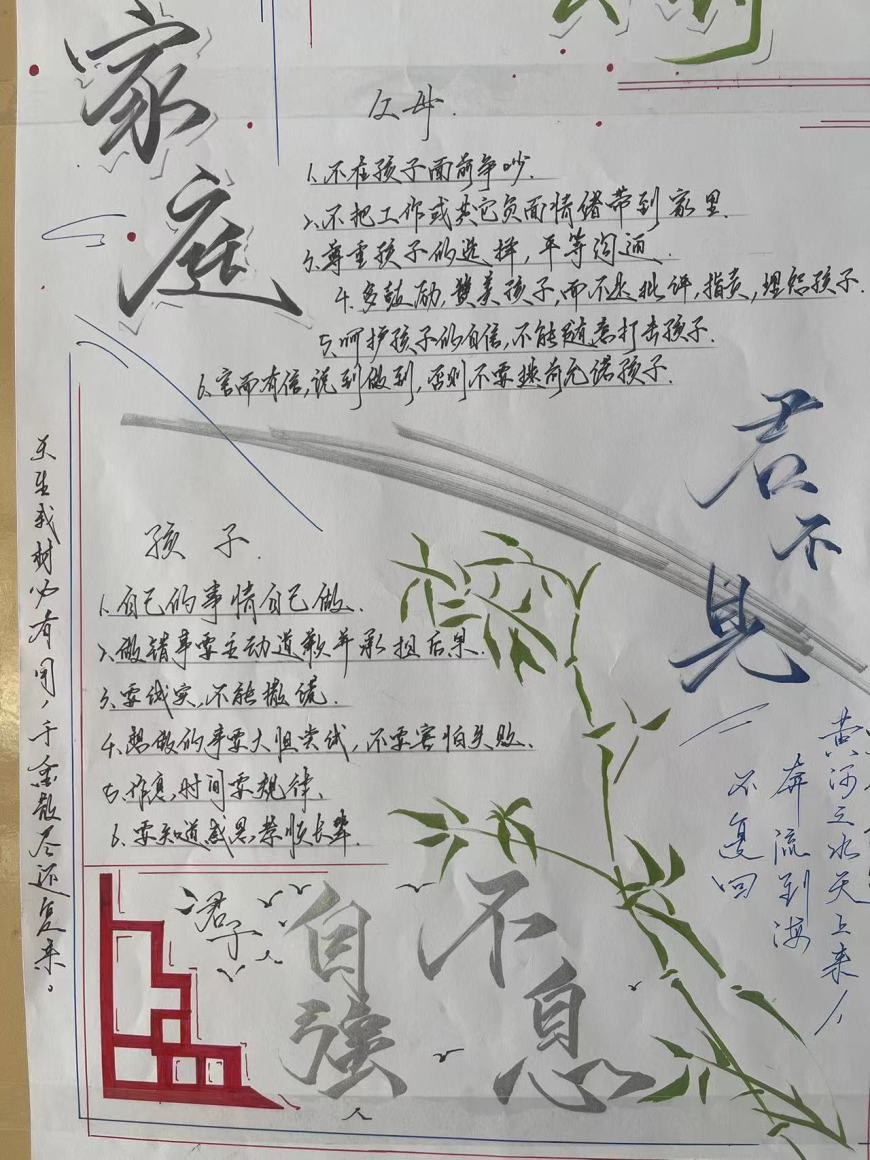 家庭
父母.
1.不在孩子面前争吵.
2.不把工作或其它负面情绪带到家里.
3.尊重孩子的选择,平等沟通.
4.多鼓励,赞美孩子,而不是批评,指责,埋怨孩子.
5.呵护孩子的自信,不能随意打击孩子.
6.言而有信,说到做到,否则不要提前允诺孩子.
孩子.
1.自己的事情自己做.
2.做错事要主动道歉并承担后果.
3.要诚实,不能撒谎.
4.想做的事要大胆尝试,不要害怕失败.
5.作息,时间要规律.
6.要知道感恩,孝顺长辈.
天生我材必有用,千金散尽还复来。
君不见
黄河之水天上来,
奔流到海
不复回
君子
自强
不息